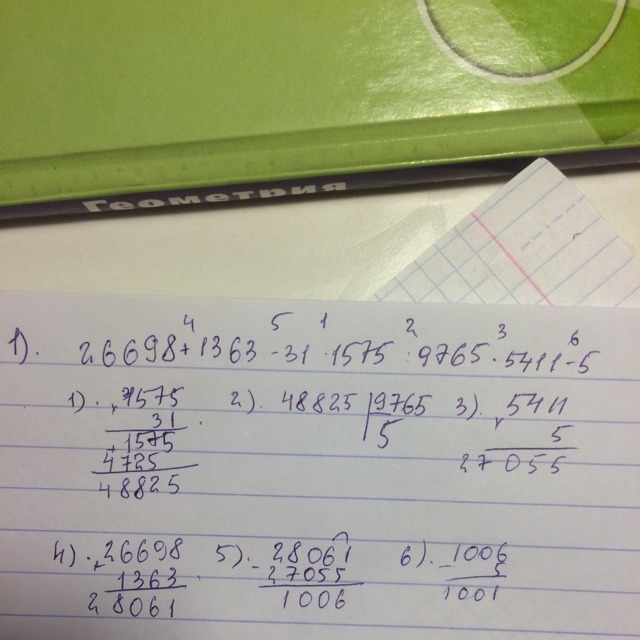 Геометрия
4 5 1 2 3 6
1). 26698+1363-31·1575:9765·5411-5
1). 1575 2). 48825 9765 3). 5411
31 5 5
1575 27055
4725
48825
4). 26698 5). 28061 6). 1006
1363 27055 5
28061 1006 1001